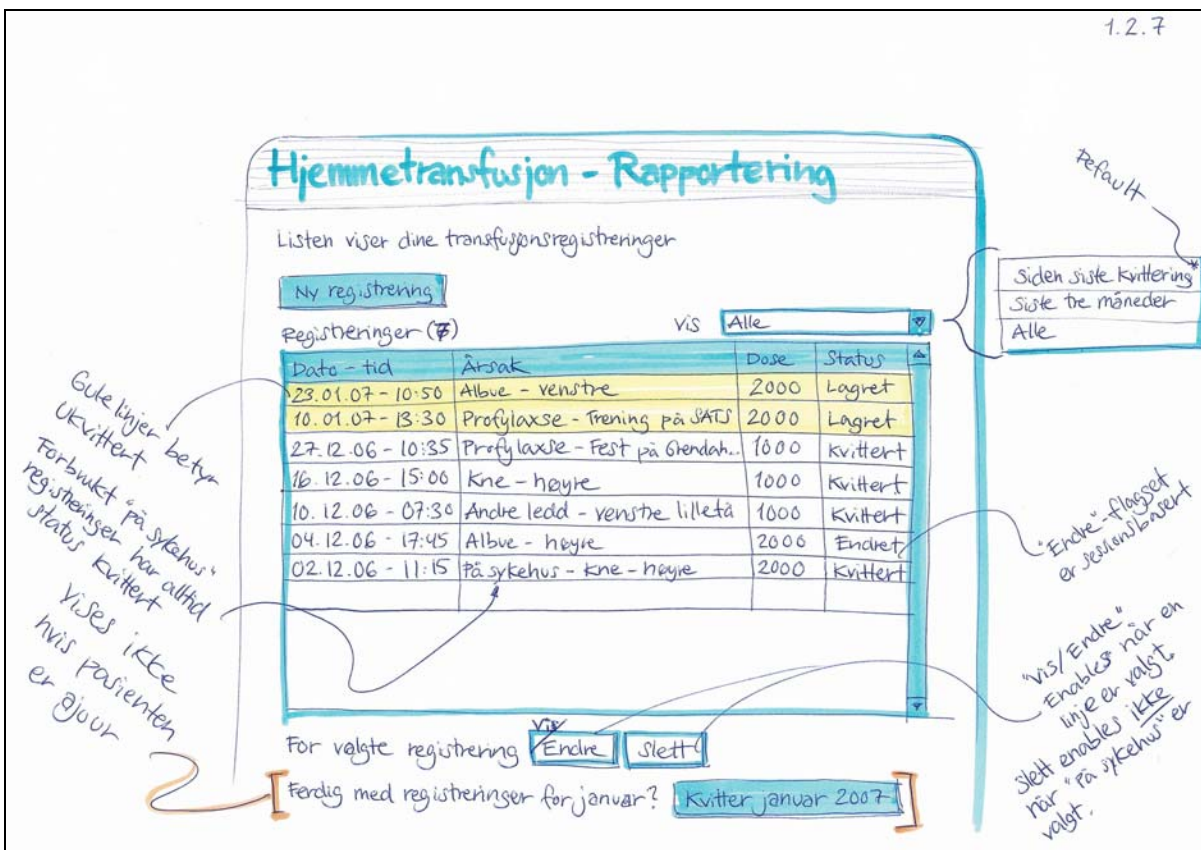 1.2.7
Hjemmetransfusjon - Rapportering
Listen viser dine transfusjonsregistreringer
Ny registrering
Registreringer (7)
Vis Alle
Dato - tid Årsak Dose Status
23.01.07 - 10:50 Albue - venstre 2000 Lagret
10.01.07 - 13:30 Profylaxse - Trening på SATS 2000 Lagret
27.12.06 - 10:35 Profylaxse - Fest på Grendah.. 1000 Kvittert
16.12.06 - 15:00 Kne - høyre 1000 Kvittert
10.12.06 - 07:30 Andre ledd - venstre lilletå 1000 Kvittert
04.12.06 - 17:45 Albue - høyre 2000 Endret
02.12.06 - 11:15 På sykehus - kne - høyre 2000 Kvittert
Vis/
For valgte registrering Endre Slett
Ferdig med registreringer for januar? Kvitter januar 2007
Default
Siden siste kvittering*
Siste tre måneder
Alle
Gule linjer betyr
Ukvittert
Forbrukt "på sykehus"
registreringer har alltid
status kvittert
Vises ikke
hvis pasienten
er ajour
"Endre"-flagget
er sessionsbasert
"Vis/Endre"
Enables når en
linje er valgt.
Slett enables ikke
når "På sykehus" er
valgt.